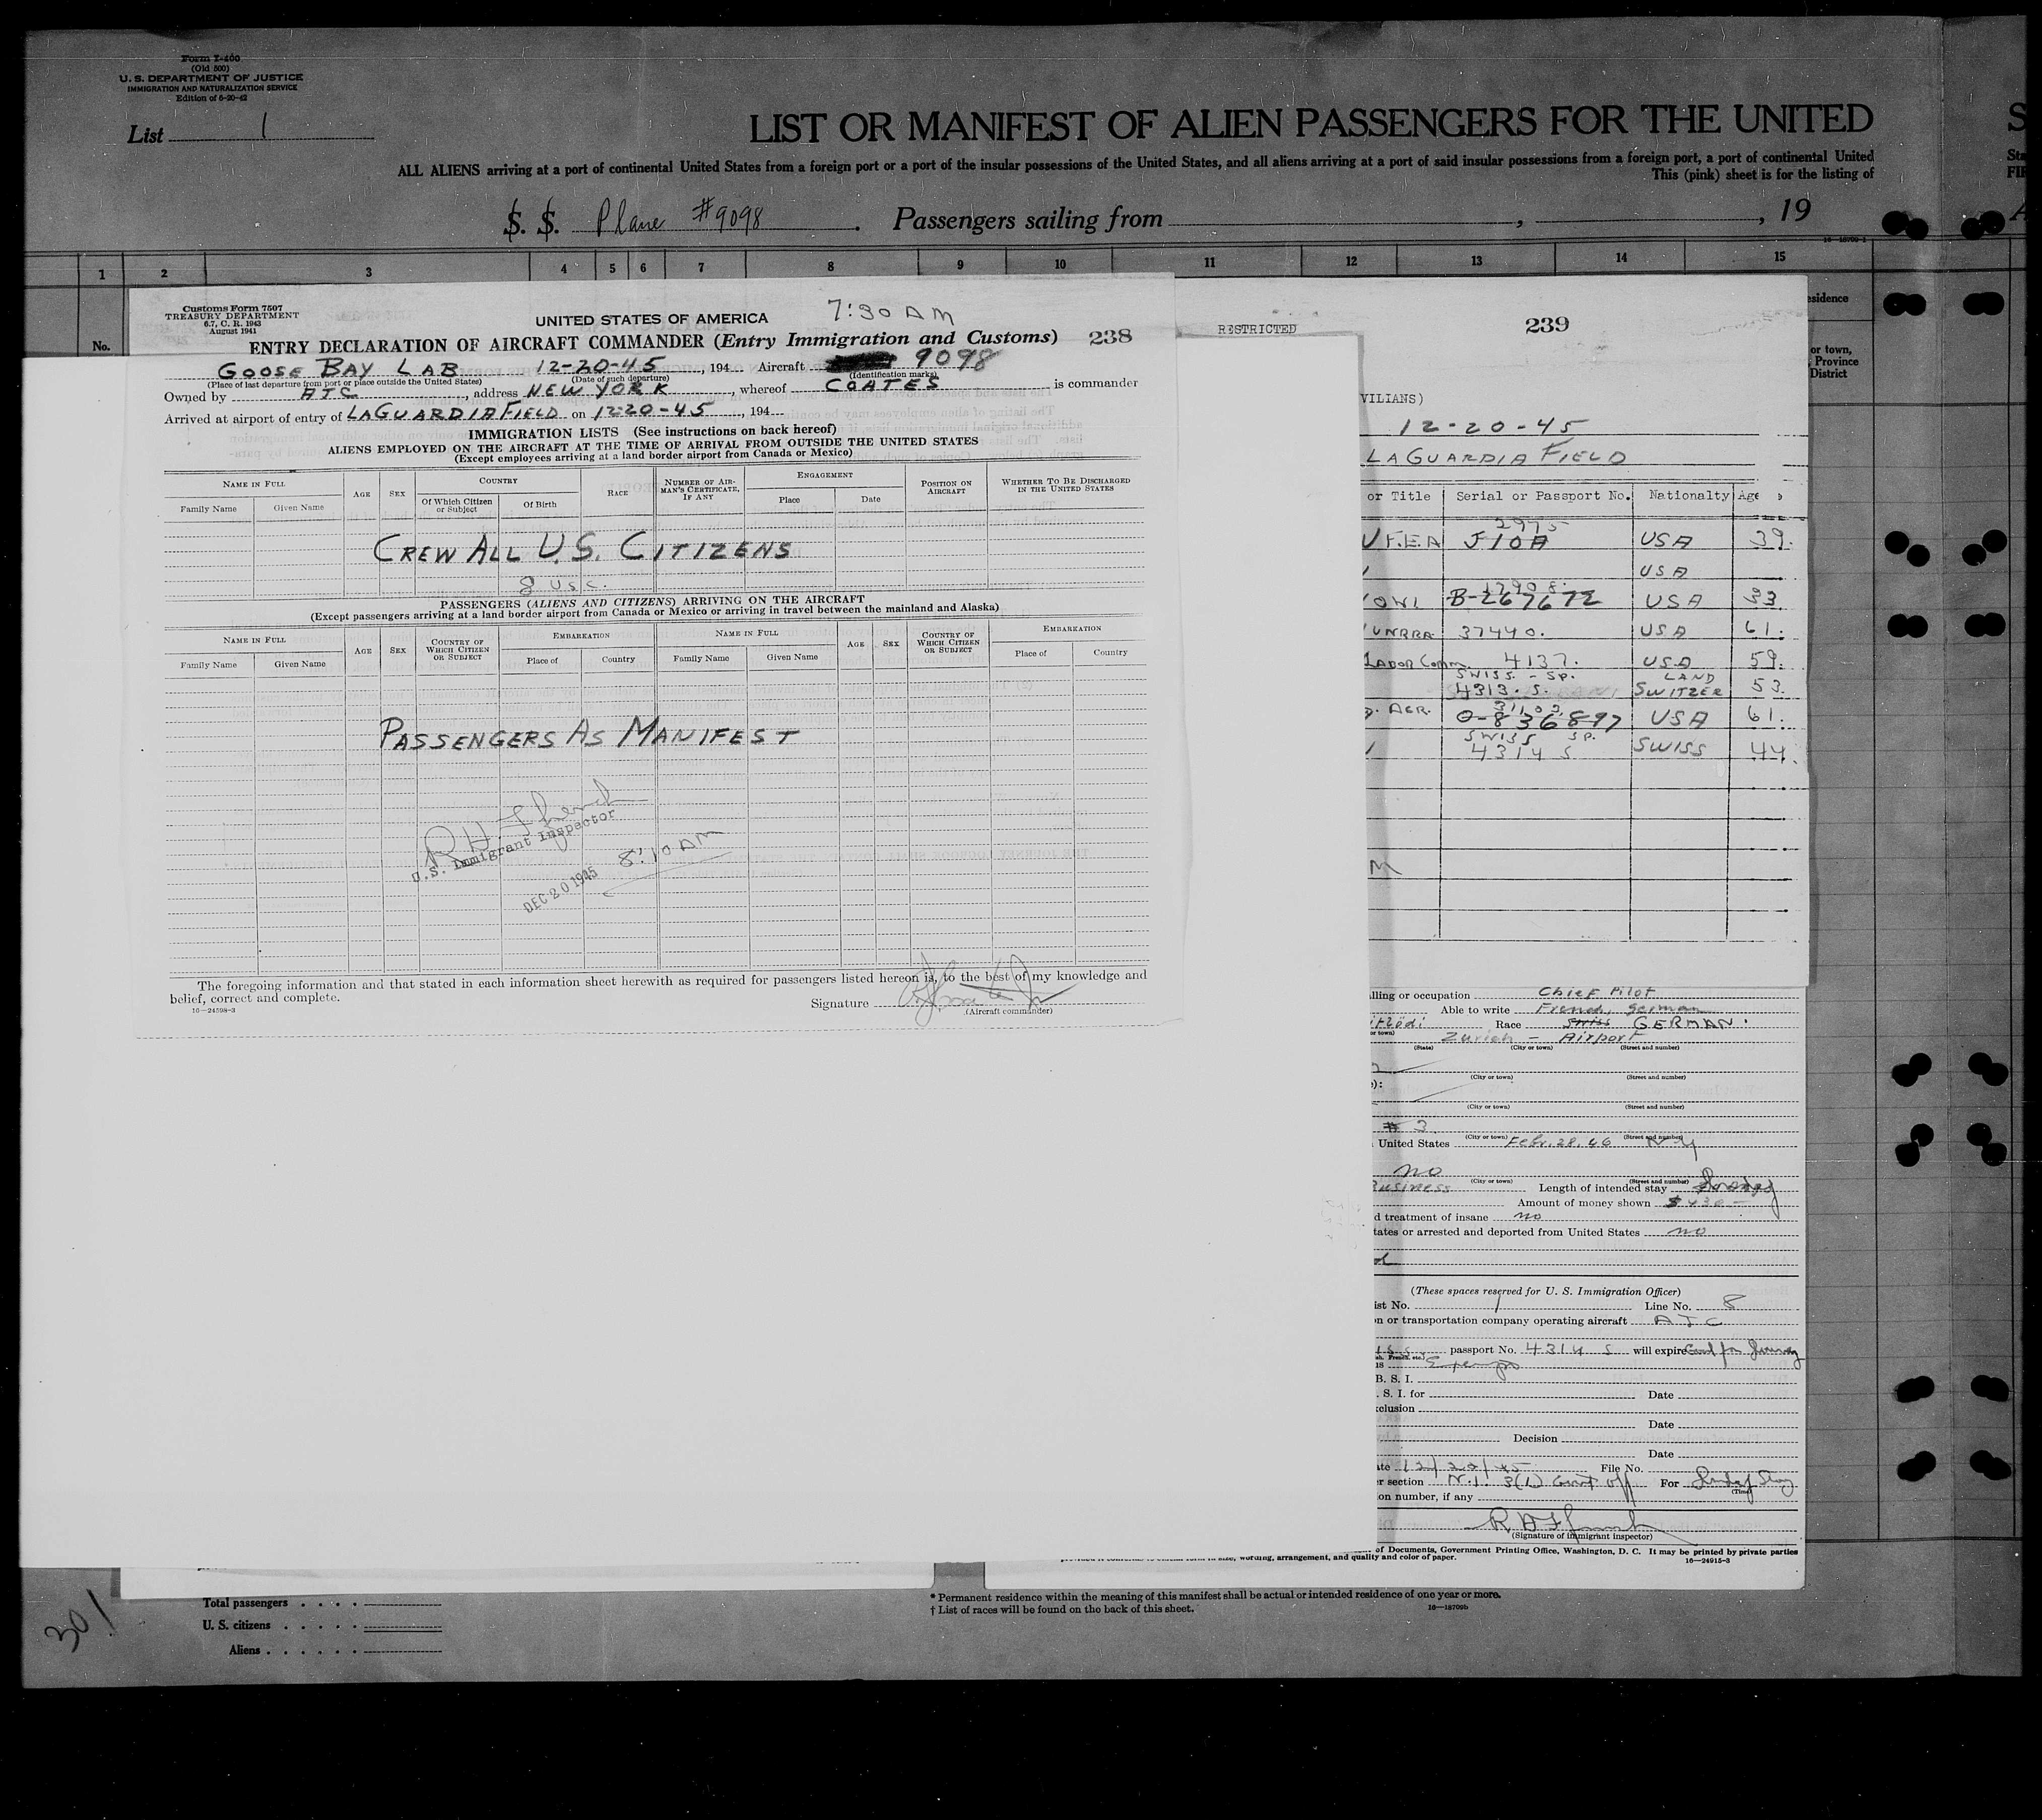 Form I-400
(Old 500)
U. S. DEPARTMENT OF JUSTICE
IMMIGRATION AND NATURALIZATION SERVICE
Edition of 6-20-42
List 1
LIST OR MANIFEST OF ALIEN PASSENGERS FOR THE UNITED
ALL ALIENS arriving at a port of continental United States from a foreign port or a port of the insular possessions of the United States, and all aliens arriving at a port of said insular possessions from a foreign port, a port of continental United
This (pink) sheet is for the listing of
S. S. Plane #9098. Passengers sailing from , , 19
1 2 3 4 5 6 7 8 9 10 11 12 13 14 15
No.
Customs Form 7507
TREASURY DEPARTMENT
6.7, C. R. 1943
August 1941
UNITED STATES OF AMERICA
7:30 AM
ENTRY DECLARATION OF AIRCRAFT COMMANDER (Entry Immigration and Customs) 238
GOOSE BAY LAB 12-20-45, 194 Aircraft 9098
(Place of last departure from port or place outside the United States) (Date of such departure) (Identification marks)
Owned by ATC, address NEW YORK, whereof COATES is commander
Arrived at airport of entry of LAGUARDIA FIELD on 12-20-45, 194
IMMIGRATION LISTS (See instructions on back hereof)
ALIENS EMPLOYED ON THE AIRCRAFT AT THE TIME OF ARRIVAL FROM OUTSIDE THE UNITED STATES
(Except employees arriving at a land border airport from Canada or Mexico)
NAME IN FULL AGE SEX COUNTRY RACE NUMBER OF AIRMAN'S CERTIFICATE, IF ANY ENGAGEMENT POSITION ON AIRCRAFT WHETHER TO BE DISCHARGED IN THE UNITED STATES
Family Name Given Name Of Which Citizen or Subject Of Birth Place Date
CREW ALL U.S. CITIZENS
8 USC.
PASSENGERS (ALIENS AND CITIZENS) ARRIVING ON THE AIRCRAFT
(Except passengers arriving at a land border airport from Canada or Mexico or arriving in travel between the mainland and Alaska)
NAME IN FULL AGE SEX COUNTRY OF WHICH CITIZEN OR SUBJECT EMBARKATION NAME IN FULL AGE SEX COUNTRY OF WHICH CITIZEN OR SUBJECT EMBARKATION
Family Name Given Name Place of Country Family Name Given Name Place of Country
PASSENGERS AS MANIFEST
U.S. Immigrant Inspector
DEC 20 1945 8:10 AM
The foregoing information and that stated in each information sheet herewith as required for passengers listed hereon is, to the best of my knowledge and
belief, correct and complete.
16-24598-3
Signature
(Aircraft commander)
RESTRICTED 239
esidence
or town,
Province
District
VILIANS)
12-20-45
LAGUARDIA FIELD
or Title Serial or Passport No. Nationalty Age
2975
F.E.A J10A USA 39.
USA
OWI B-267672 USA 33
UNRRA 37440. USA 61.
LABOR Comm. 4137. USA 59.
SWISS - SP. LAND
4313. S. SWITZER 53
31103
O-836897 USA 61.
SWISS SP.
4314 S SWISS 44.
M
lling or occupation Chief Pilot
Able to write French, German
Race Swiss GERMAN.
Zurich - Airport
(State) (City or town) (Street and number)
(City or town) (Street and number)
(City or town) (Street and number)
# 3
United States Febr. 28. 46 N Y
(City or town) (Street and number)
no
(City or town) (Street and number)
Business Length of intended stay
Amount of money shown $430-
d treatment of insane no
tates or arrested and deported from United States no
(These spaces reserved for U. S. Immigration Officer)
ist No. 1 Line No. 8
n or transportation company operating aircraft ATC
passport No. 4314 S will expire
B. S. I.
. S. I. for Date
xclusion
Date
Decision
Date
ate 12/20/45 File No.
er section 3(1) Govt Off For
(Time)
on number, if any
(Signature of immigrant inspector)
of Documents, Government Printing Office, Washington, D. C. It may be printed by private parties
wording, arrangement, and quality and color of paper.
16-24915-3
301
Total passengers
U. S. citizens
Aliens
* Permanent residence within the meaning of this manifest shall be actual or intended residence of one year or more.
† List of races will be found on the back of this sheet.
16-18709b